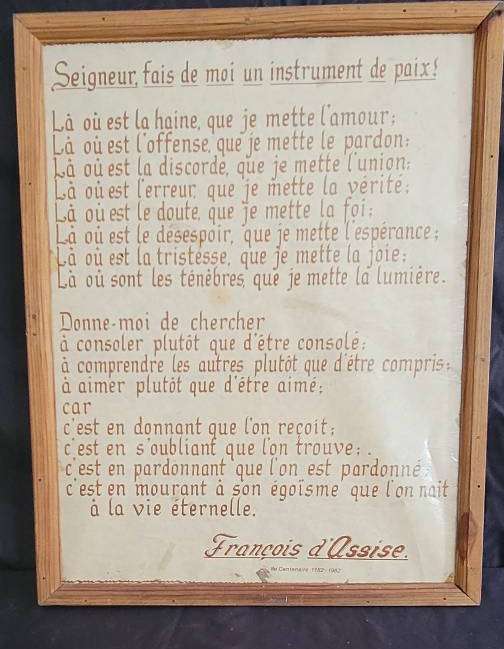 Seigneur, fais de moi un instrument de paix!
Là où est la haine, que je mette l'amour;
Là où est l'offense, que je mette le pardon;
Là où est la discorde, que je mette l'union;
Là où est l'erreur, que je mette la vérité;
Là où est le doute, que je mette la foi;
Là où est le désespoir, que je mette l'espérance;
Là où est la tristesse, que je mette la joie;
Là où sont les ténèbres, que je mette la lumière.
Donne-moi de chercher
à consoler plutôt que d'être consolé;
à comprendre les autres plutôt que d'être compris;
à aimer plutôt que d'être aimé;
car
c'est en donnant que l'on reçoit;
c'est en s'oubliant que l'on trouve;
c'est en pardonnant que l'on est pardonné;
c'est en mourant à son égoïsme que l'on naît
à la vie éternelle.
François d'Assise.
8e Centenaire 1182-1982